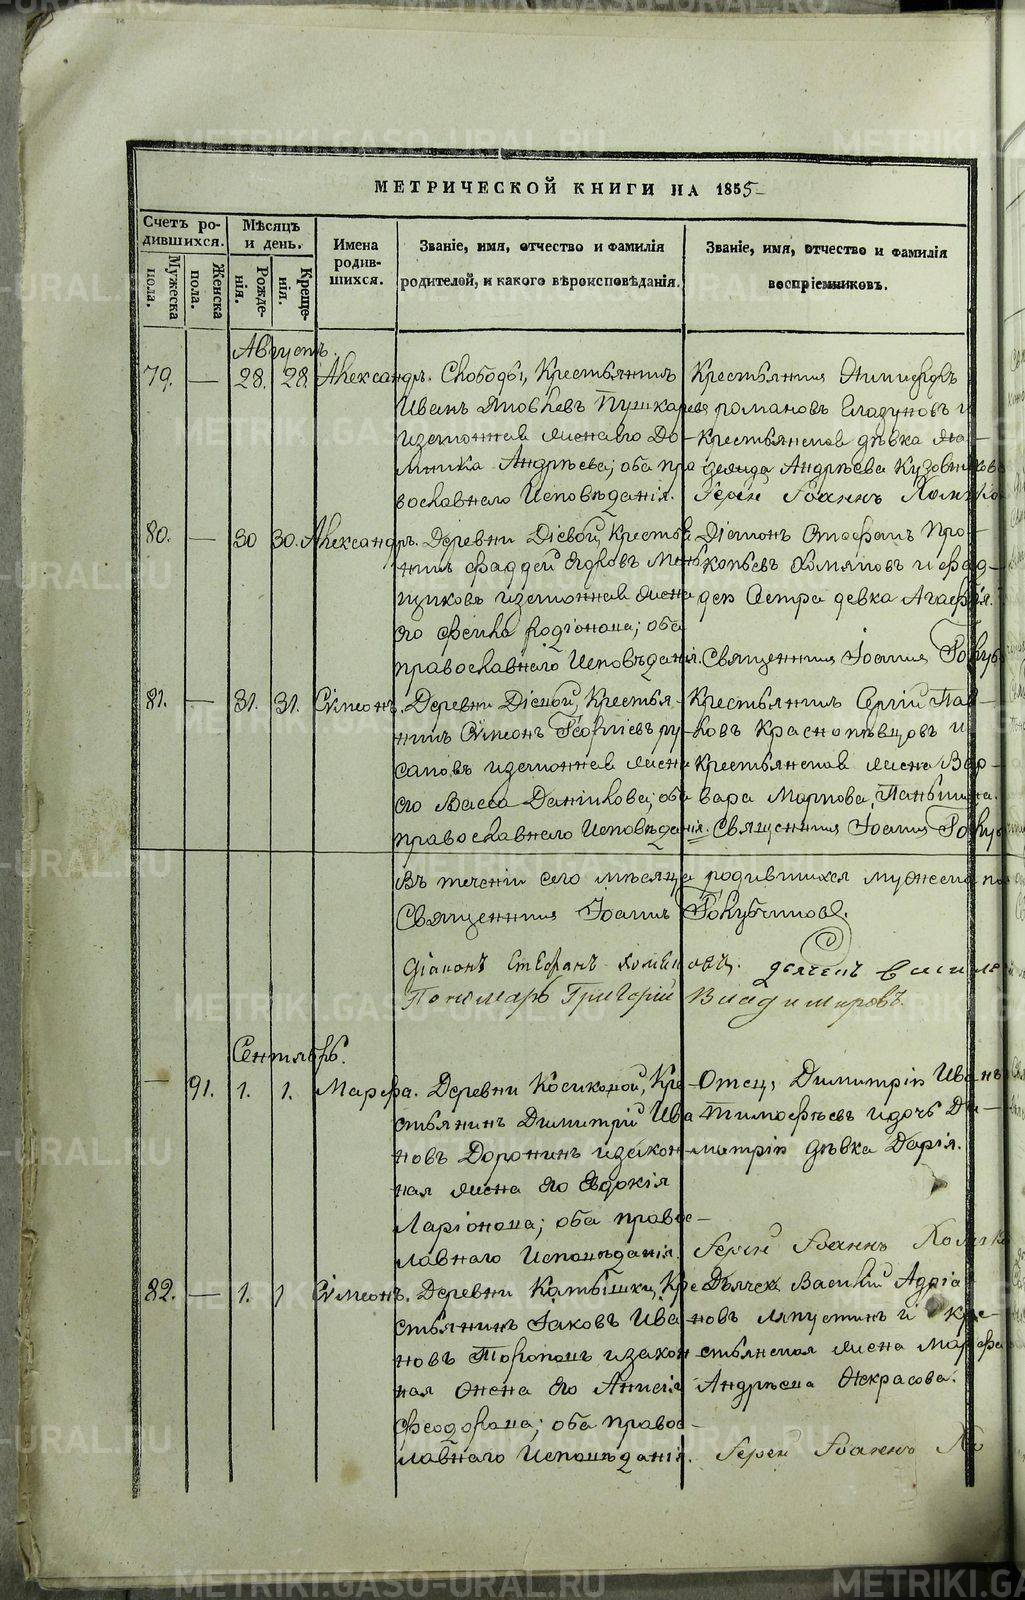 МЕТРИЧЕСКОЙ КНИГИ НА 1855
Счетъ родившихся.
Мужеска пола.
Женска пола.
Мѣсяцъ и день.
Рожденія.
Крещенія.
Имена родившихся.
Званіе, имя, отчество и фамилія родителей, и какого вѣроисповѣданія.
Званіе, имя, отчество и фамилія воспріемниковъ.
Августъ.
79. — 28. 28. Александръ. Слободы, Крестьянинъ
Иванъ Яковлевъ Пушкаревъ
и законная жена его До-
мника Андрѣева; оба пра
вославнаго Исповѣданія.
Крестьянинъ
Романовъ Глазуновъ и
Крестьянская дѣвка
Андрѣева
Іерей Іоаннъ
80. — 30 30. Александръ. Деревни Діевой, Крестья
нинъ Фаддей
и законная жена
его Фекла Родіонова; оба
православнаго Исповѣданія.
Діаконъ Стефанъ Про-
копьевъ Хомяковъ и
сестра девка Агафія.
Священникъ Іоаннъ
81. — 31. 31. Сѵмеонъ. Деревни Діевой, Крестья-
нинъ Сѵмеонъ Георгіевъ Ру-
саковъ и законная жена
его Васса Данилова; оба
православнаго Исповѣданія.
Крестьянинъ Сергій Пав-
ловъ Красноперовъ и
Крестьянская жена Вар-
вара Маркова,
Священникъ Іоаннъ
Въ теченіи сего мѣсяца родившихся мужеска по
Священникъ Іоаннъ Голубчиковъ.
Діаконъ Стефанъ Хомяковъ. Дьячекъ Василі
Пономарь Григорій Владимировъ.
Сентябрь.
— 91. 1. 1. Марфа. Деревни Косиковой, Кре-
стьянинъ Димитрій Ива
новъ Доронинъ и закон-
ная жена его Евдокія
Ларіонова; оба право-
лавнаго Исповѣданія.
Отецъ Димитрія Иванъ
Тимофѣевъ и дочь Ди-
митрія дѣвка Дарія.
Іерей Іоаннъ
82. — 1. 1 Сѵмеонъ. Деревни Калтышки, Кре
стьянинъ Іаковъ Ива
новъ Тороповъ и закон
ная жена его Анисія
Феодорова; оба право-
лавнаго Исповѣданія.
Дьячекъ Василій Адріа
новъ Ляпустинъ и кре-
стьянская жена Марфа
Андрѣева Некрасова.
Іерей Іоаннъ Хо
METRIKI.GASO-URAL.RU